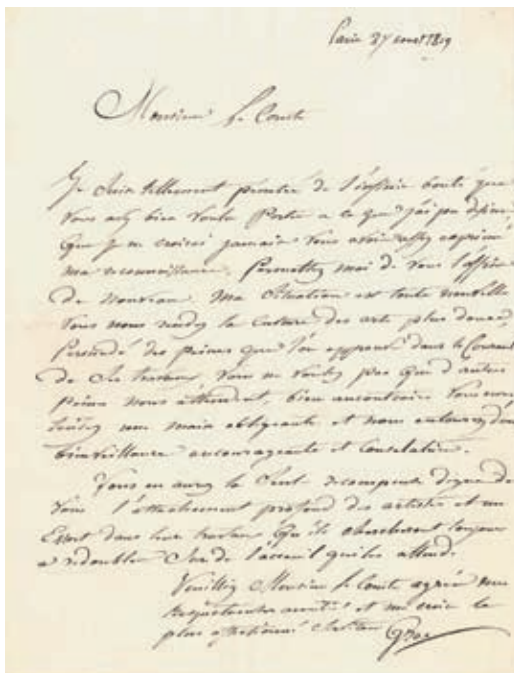 Paris 27 aout 1819
Monsieur le Comte
Je suis tellement pénétré de l'infinie bonté que
vous avez bien voulu Porter a ce que j'ai pu désirer
que je ne croirai jamais vous avoir assez exprimé
ma reconnaissance. Permettez moi de vous l'offrir
de nouveau. Ma situation est toute nouvelle
Vous nous rendez la culture des arts plus douce,
Persuadé des peines que l'on eppouve dans le Courant
de ses travaux, vous ne voulez pas que d'autres
peines nous attendent, bien aucontraire Vous nous
tendez une main obligeante et nous entourez d'une
bienveillance encourageante et Consolatrice.
Vous en aurez la Seule récompense digne de
Vous l'attachement profond des artistes et un
Essort dans leur travaux qu'ils chercheront toujours
a redoubler Sur de l'acceuil qui les attend.
Veuillez Monsieur le Comte agréer mes
respectueuses et me croire le
plus affectionné serviteur Gros